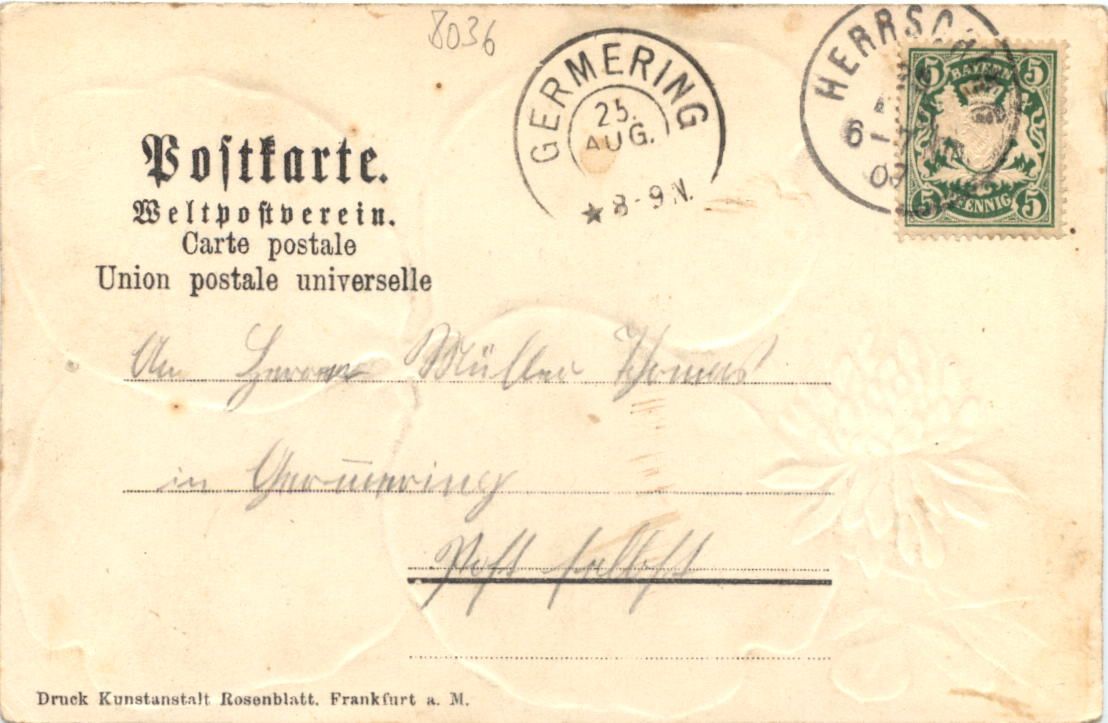 8036
GERMERING
25.
AUG.
8-9 N.
HERRSCH
6
5 BAYERN 5
5 PFENNIG 5
Postkarte.
Weltpostverein.
Carte postale
Union postale universelle
An Herrn Müller Thomas
in Germering
Post selbst
Druck Kunstanstalt Rosenblatt. Frankfurt a. M.